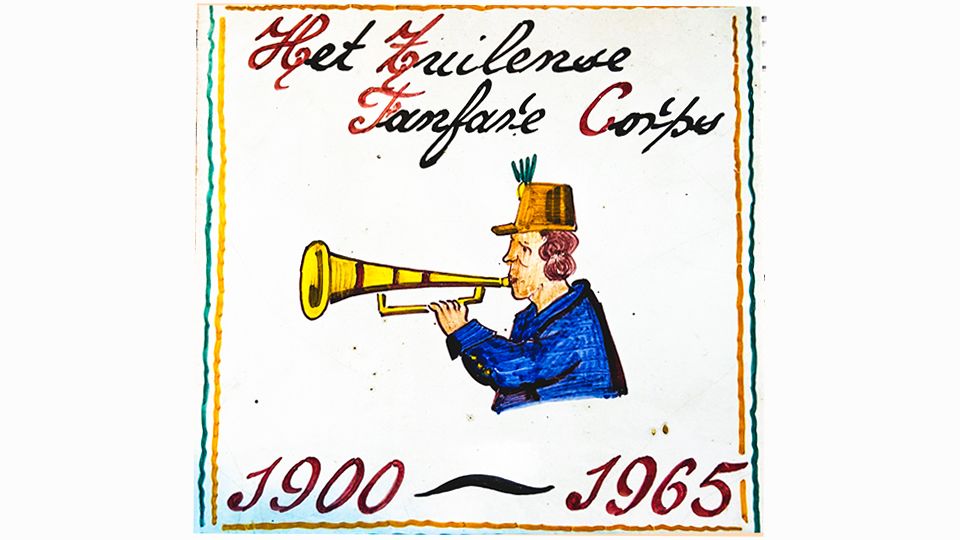 Het Zuilense
Fanfare Corps
1900 ~ 1965